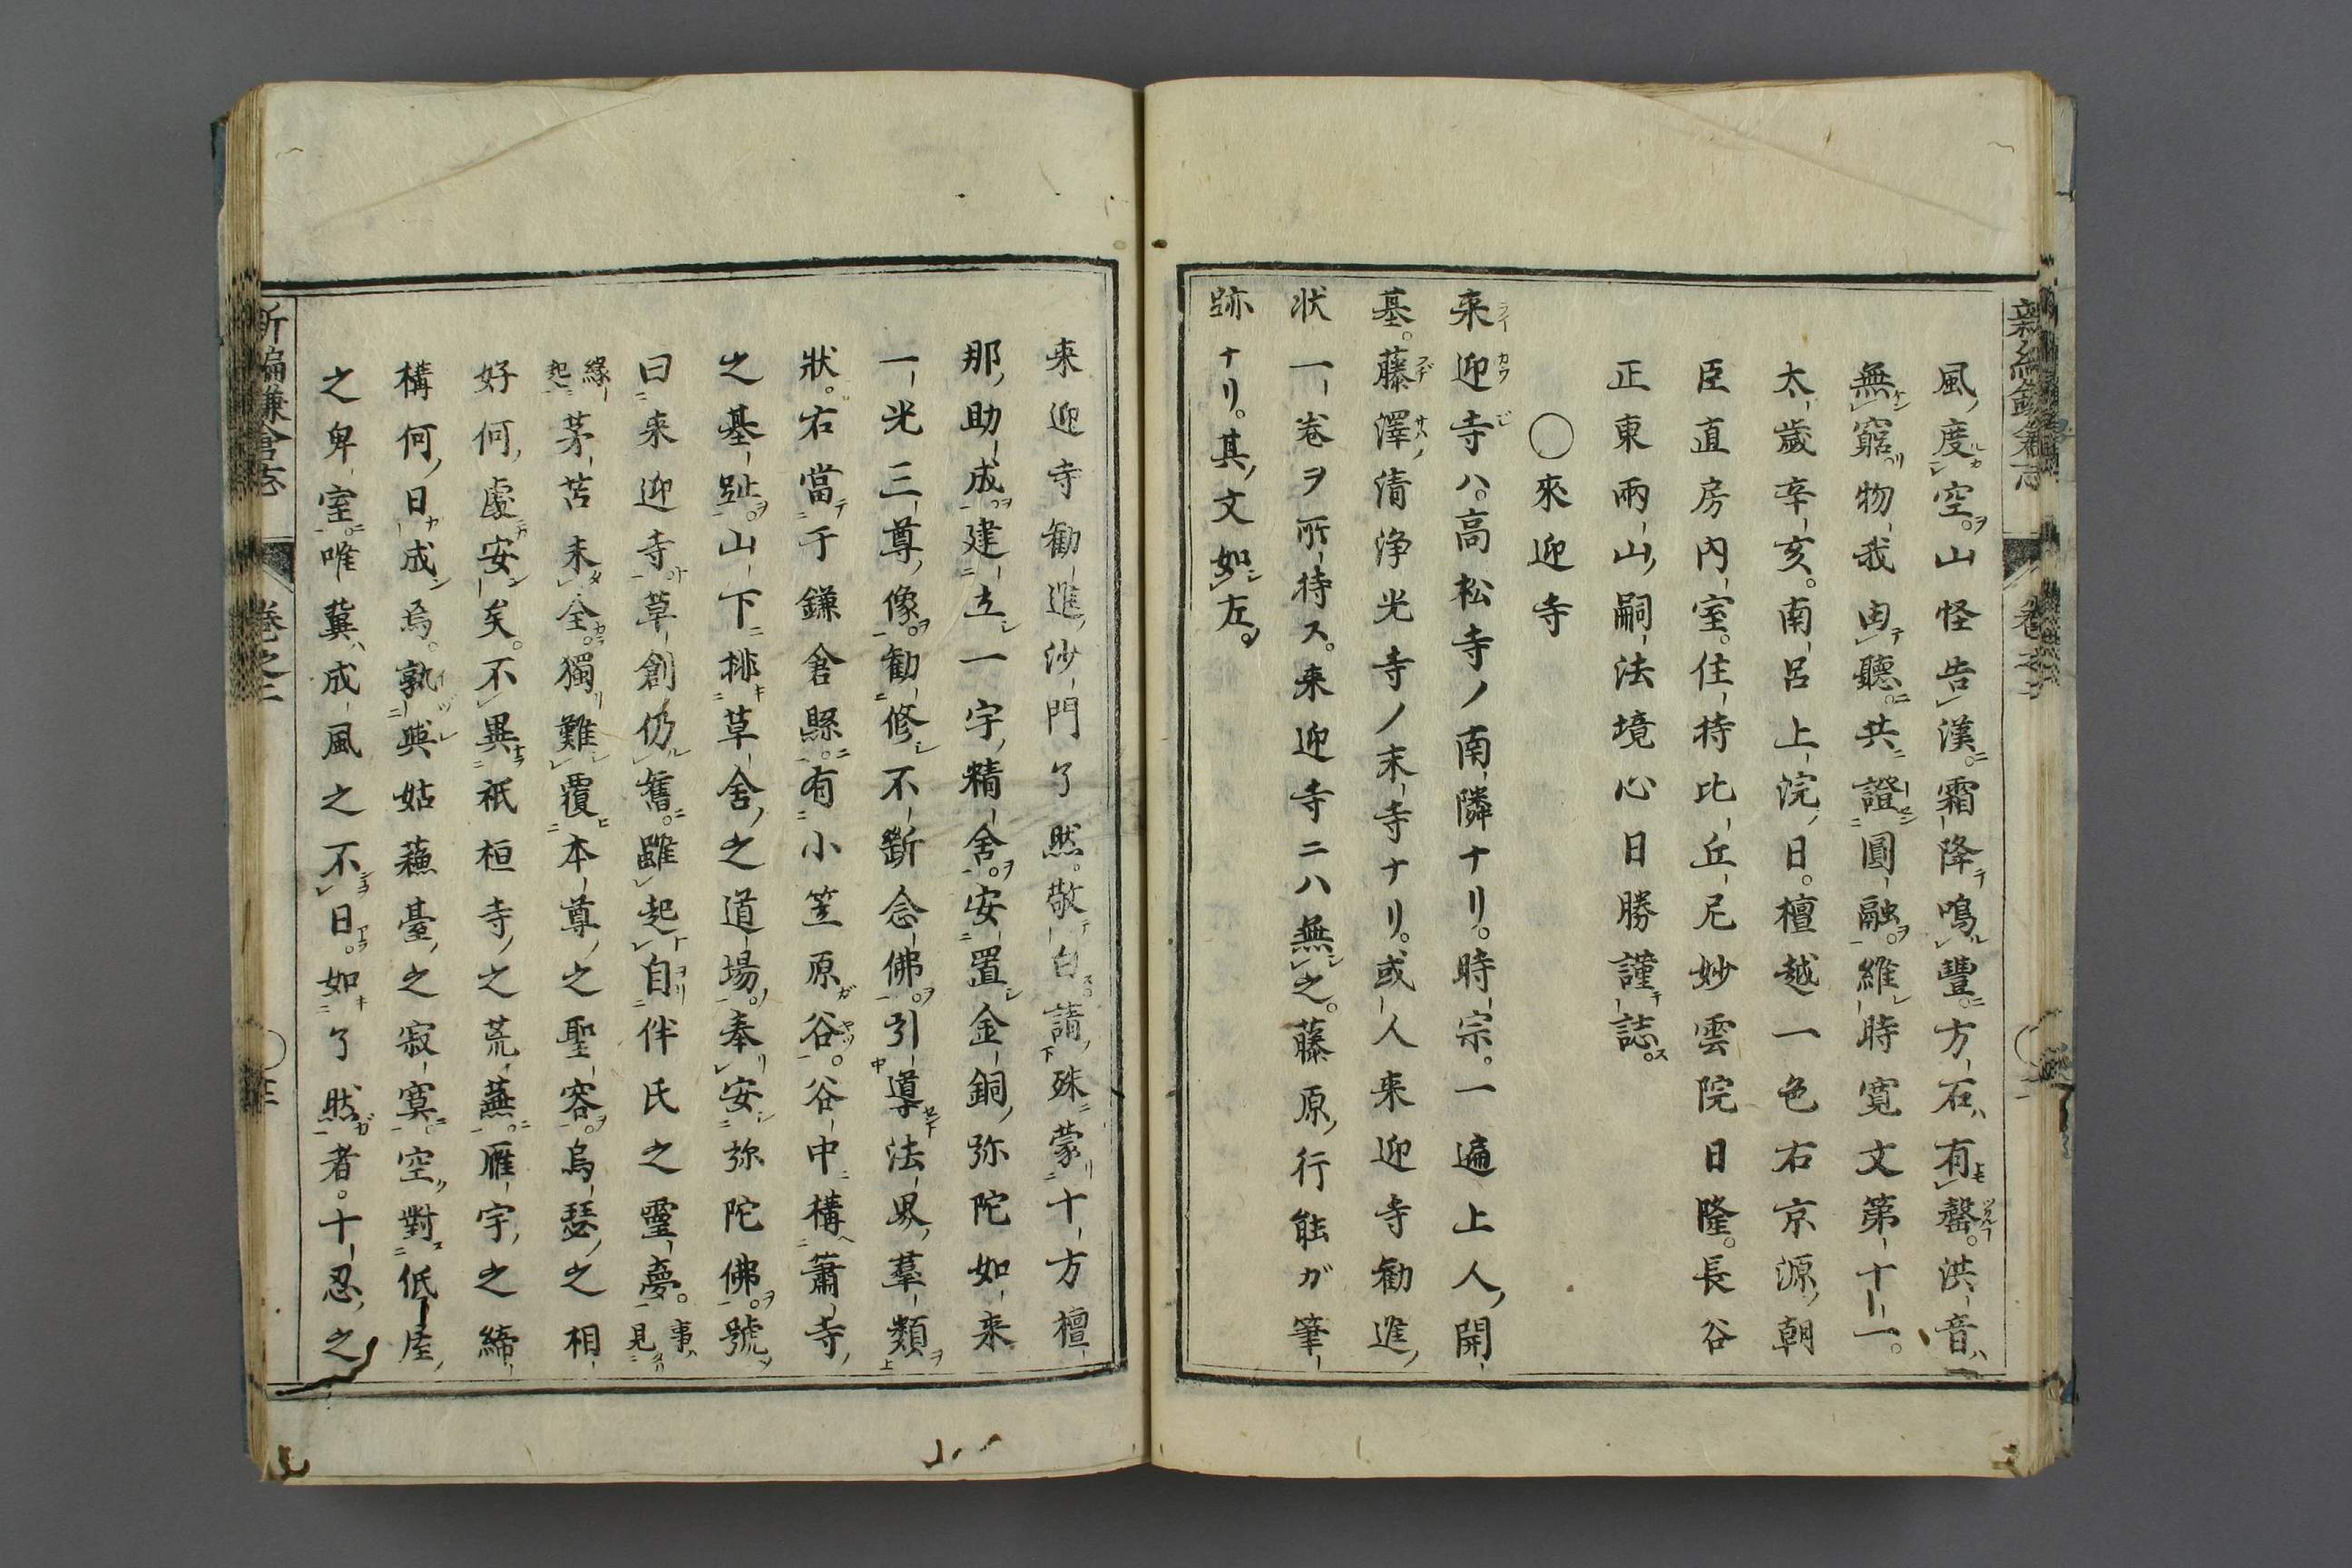 風度空山怪告漢霜降鳴豐方石有罄洪音
無窮物我由聽共證圓融維時寛文第十一
太歲辛亥南呂上浣日檀越一色右京源朝
臣直房內室住持比丘尼妙雲院日隆長谷
正東兩山嗣法境心日勝謹誌
〇來迎寺
来迎寺ハ高松寺ノ南隣ナリ時宗一遍上人開
基藤澤清浄光寺ノ末寺ナリ或人来迎寺勧進
状一卷ヲ所持ス来迎寺ニハ無之藤原行能ガ筆
跡ナリ其文如左
来迎寺勧進沙門了然敬白請殊蒙十方檀
那助成建立一宇精舍安置金銅弥陀如来
一光三尊像勧修不斷念佛引導法界羣類
狀右當于鎌倉縣有小笠原谷谷中構蕭寺
之基趾山下排草舍之道場奉安弥陀佛號
曰来迎寺草創仍舊雖起自伴氏之靈夢事見
縁起茅苫未全獨難覆本尊之聖容烏瑟之相
好何處安矣不異祇桓寺之荒蕪雁宇之締
構何日成焉孰與姑蘓臺之寂寞空對低庢
之卑室唯冀成風之不日如了然者十忍之
新編鎌倉志
卷之二